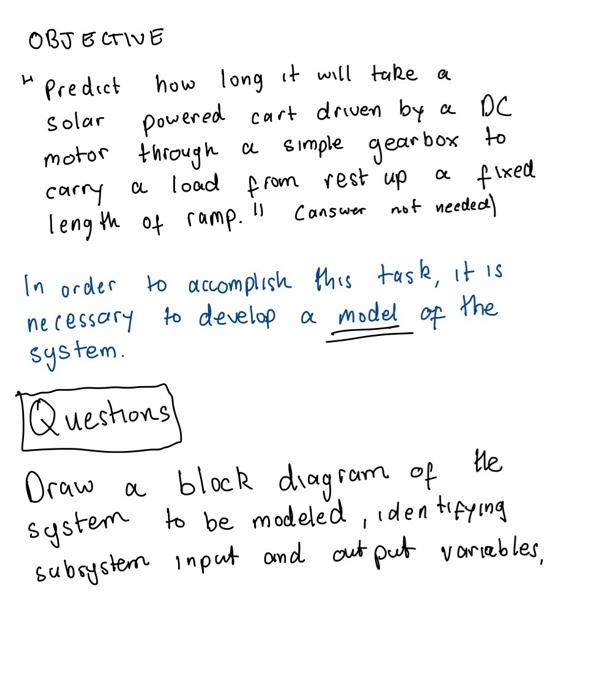 OBJECTIVE
"Predict how long it will take a
solar powered cart driven by a DC
motor through a simple gearbox to
carry a load from rest up a fixed
length of ramp." (answer not needed)
In order to accomplish this task, it is
necessary to develop a model of the
system.
Questions
Draw a block diagram of the
system to be modeled, identifying
subsystem input and output variables,